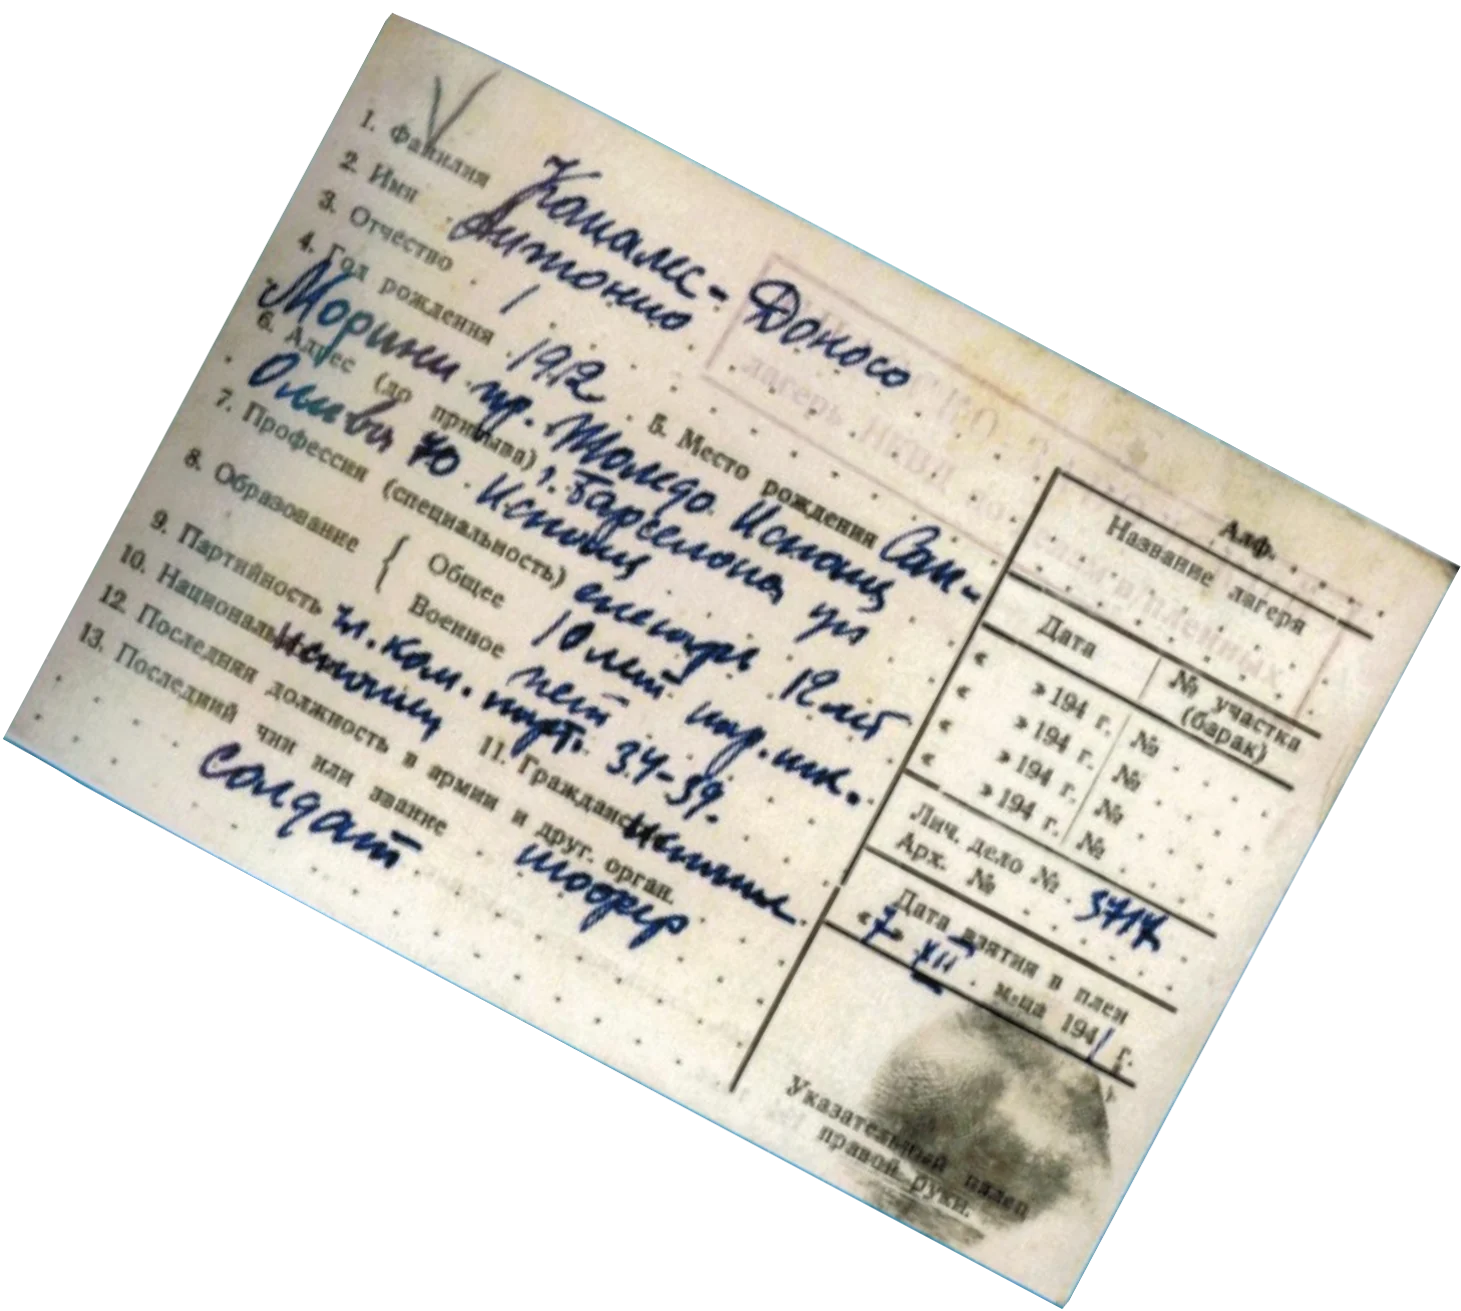 1. Фамилия Каналс-Доносо
2. Имя Антонио
3. Отчество /
4. Год рождения 1912 5. Место рождения Сан-
Морини пр. Толедо Испания
6. Адрес (до призыва) г. Барселона ул
Олива 70 Испания
7. Профессия (специальность) слесарь 12 лет
8. Образование { Общее 10 лет нар. шк.
Военное нет
9. Партийность чл. ком. парт. 34-39.
10. Националь Испанец 11. Гражданс Испания
12. Последняя должность в армии и друг. орган.
шофер
13. Последний чин или звание
солдат
Алф.
Название лагеря
Дата № участка (барак)
« » 194 г. №
« » 194 г. №
« » 194 г. №
« » 194 г. №
Лич. дело № 3717
Арх. №
Дата взятия в плен
«7» XII м-ца 1941 г.
Указательный палец
правой руки.
лагерь НКВД